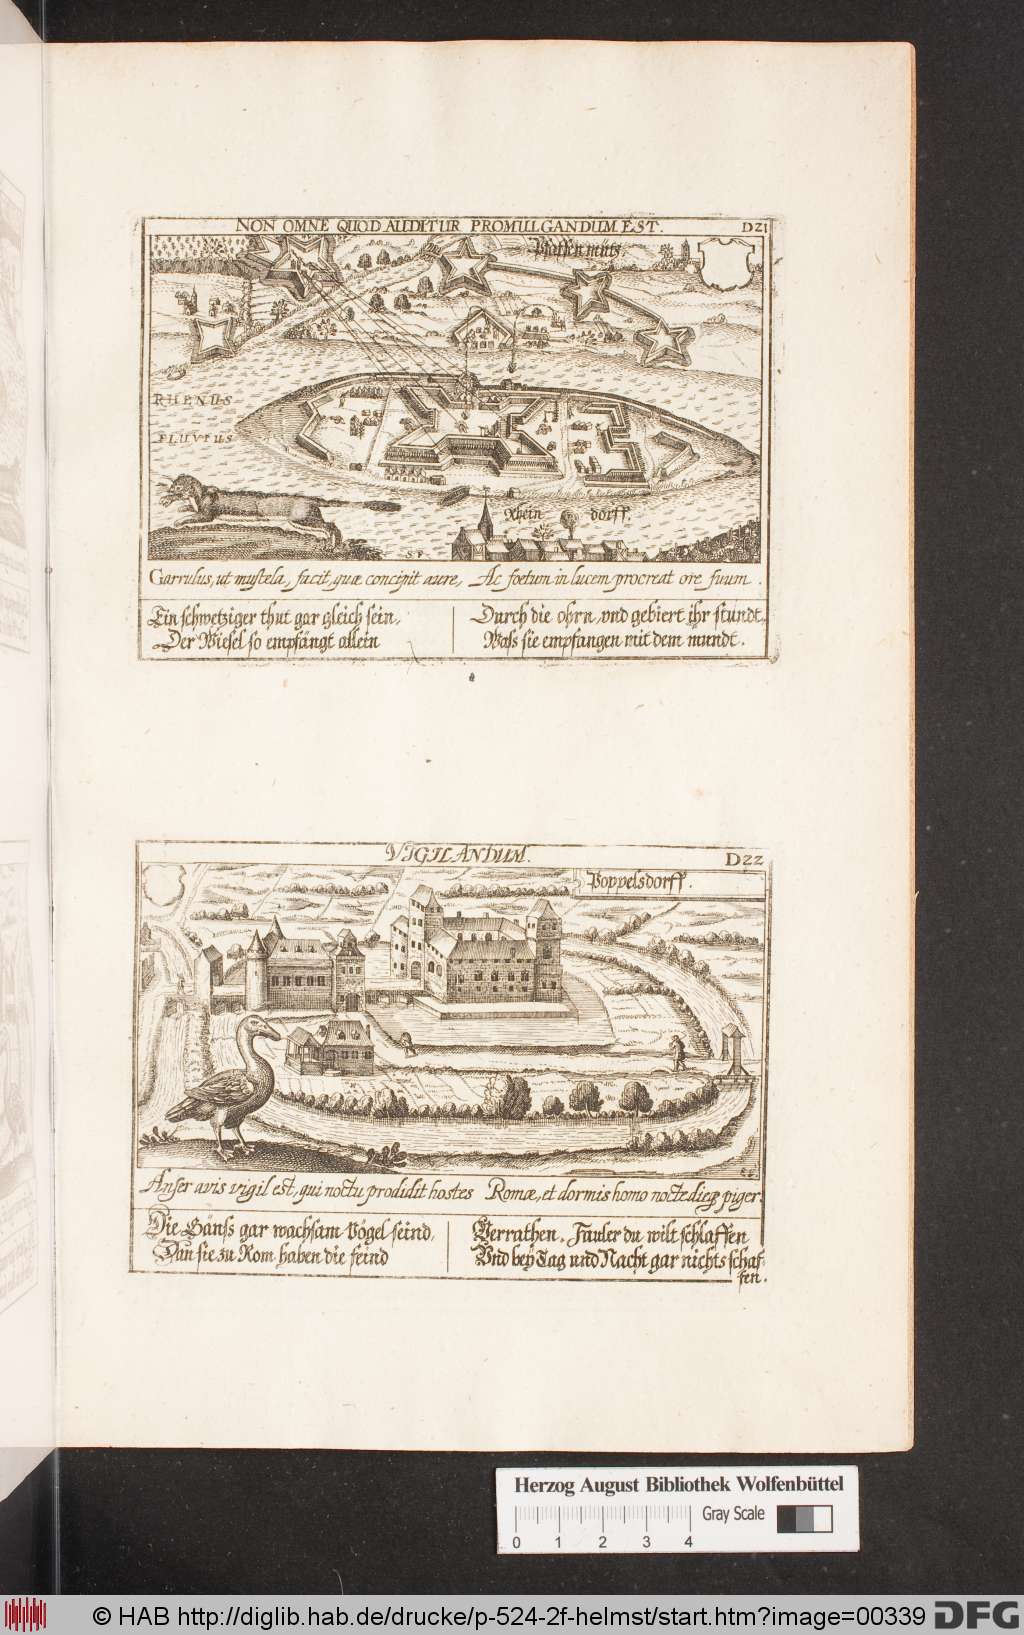 NON OMNE QUOD AUDITUR PROMULGANDUM EST.
D21
Pfaffen müts.
RHENUS
FLUVIUS
Rhein dorff.
S. F.
Garrulus, ut mustela, facit, quæ concipit aure, Ac foetum in lucem procreat ore suum.
Ein schwetziger thut gar gleich sein,
Der Wiesel so empfängt allein
Durch die ohrn, vnd gebiert ihr stundt,
Wass sie empfangen mit dem mundt.
VIGILANDUM.
D22
Poppelsdorff.
Anser avis vigil est, qui noctu prodidit hostes Romæ, et dormis homo nocte dieq; piger.
Die Gänss gar wachsam Vögel seind,
Dan sie zu Rom haben die feind
Verrathen. Fauler du wilt schlaffen
Vnd bey Tag und Nacht gar nichts schaf-
fen.
Herzog August Bibliothek Wolfenbüttel
Gray Scale
0 1 2 3 4
© HAB http://diglib.hab.de/drucke/p-524-2f-helmst/start.htm?image=00339
DFG